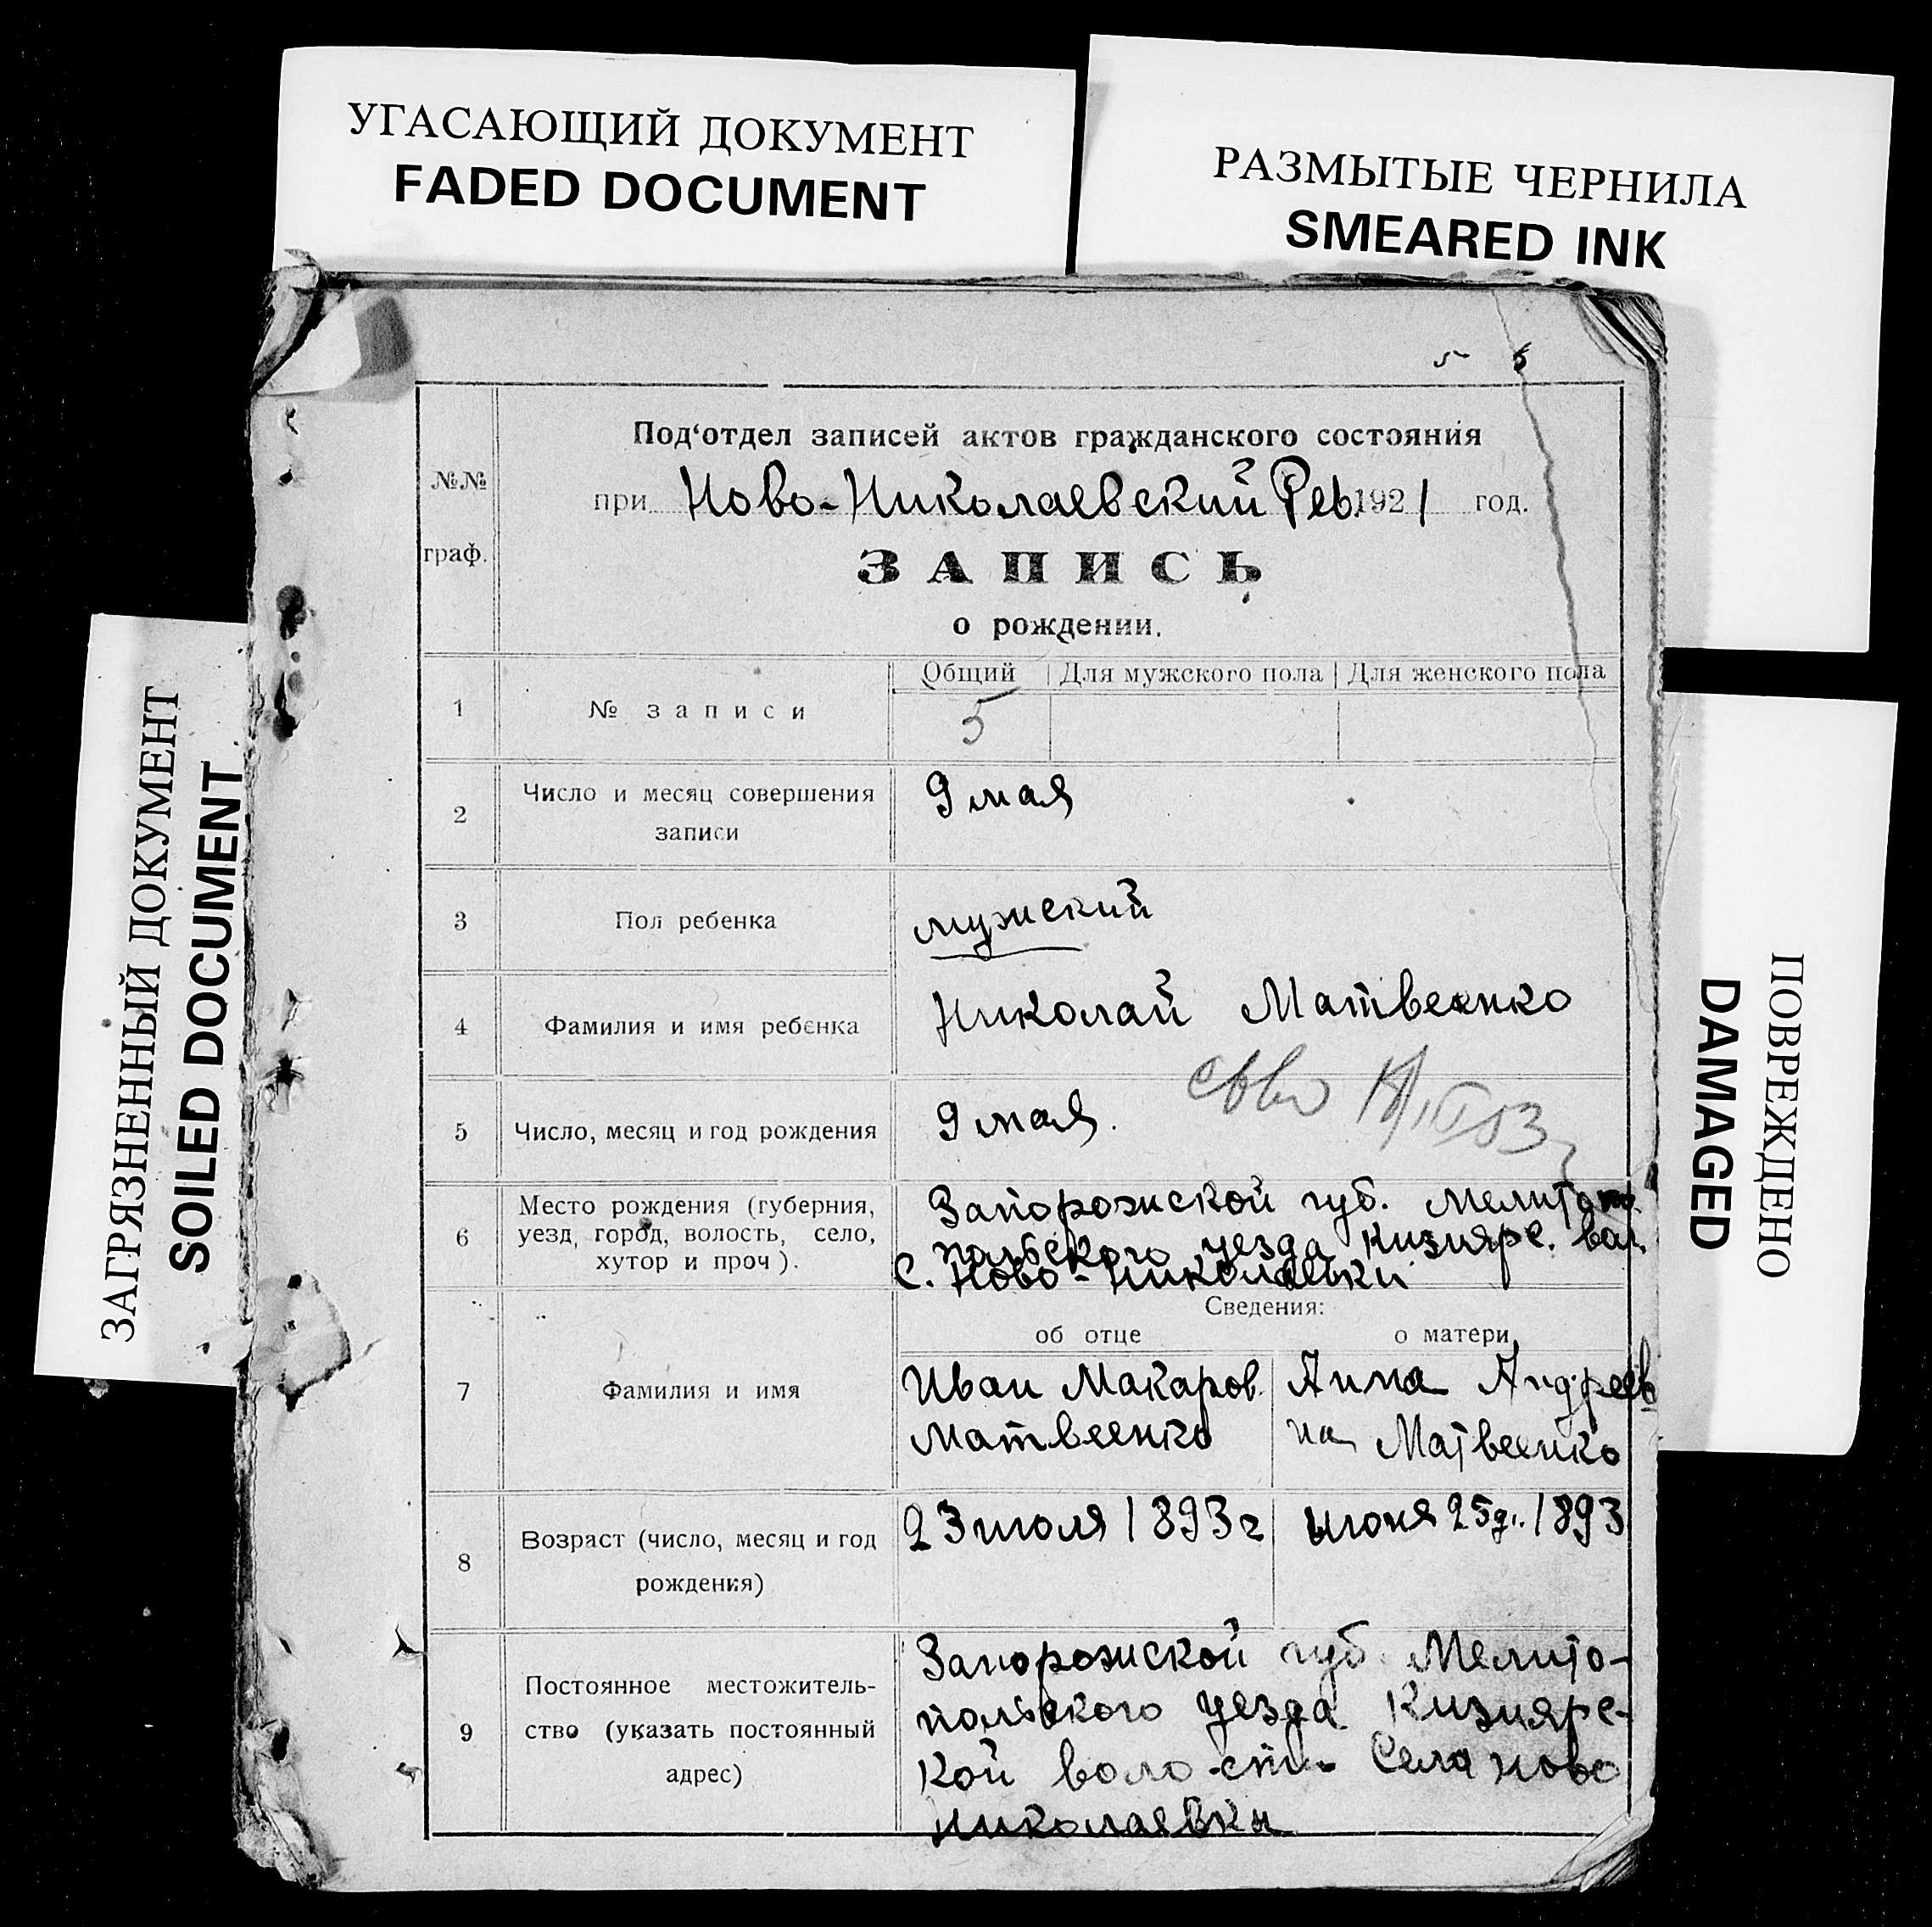 УГАСАЮЩИЙ ДОКУМЕНТ
FADED DOCUMENT
РАЗМЫТЫЕ ЧЕРНИЛА
SMEARED INK
ЗАГРЯЗНЕННЫЙ ДОКУМЕНТ
SOILED DOCUMENT
ПОВРЕЖДЕНО
DAMAGED
5 6
№№
граф.
Под‘отдел записей актов гражданского состояния
при Ново-Николаевский Рев. 1921 год.
ЗАПИСЬ
о рождении.
Общий Для мужского пола Для женского пола
1 № записи 5
2 Число и месяц совершения 9 мая
записи
3 Пол ребенка мужский
4 Фамилия и имя ребенка Николай Матвеенко
5 Число, месяц и год рождения 9 мая.
6 Место рождения (губерния, Запорожской губ. Мелито
уезд, город, волость, село, польского уезда Кизиярс. вол.
хутор и проч). с. Ново-Николаевки
Сведения:
об отце о матери
7 Фамилия и имя Иван Макаров. Анна Андреев
Матвеенко на Матвеенко
8 Возраст (число, месяц и год 23 июля 1893 г июня 25 д. 1893
рождения)
9 Постоянное местожитель- Запорожской губ. Мелито-
ство (указать постоянный польского уезда Кизиярс-
адрес) кой волости Села Ново
Николаевки